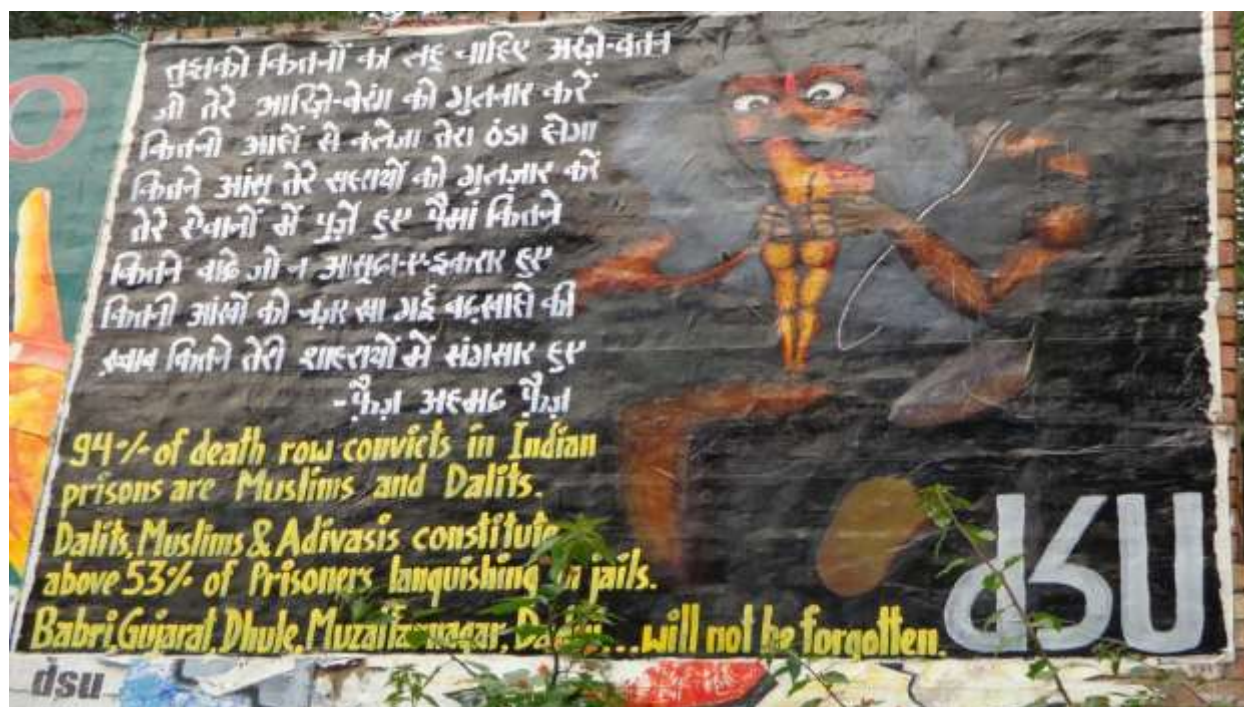 तुझको कितनों का लहू चाहिए अर्ज़े-वतन
जो तेरे आरिज़े-बेरंग को गुलनार करें
कितनी आहों से कलेजा तेरा ठंडा होगा
कितने आंसू तेरे सहराओं को गुलज़ार करें
तेरे ऐवानों में पुर्ज़े हुए पैमां कितने
कितने वादे जो न आसूदा-ए-इक़रार हुए
कितनी आंखों को नज़र खा गई बदख़्वाहों की
ख़्वाब कितने तेरी शाहराहों में संगसार हुए
-फ़ैज़ अहमद फ़ैज़
94% of death row convicts in Indian
prisons are Muslims and Dalits.
Dalits, Muslims & Adivasis constitute
above 53% of Prisoners languishing in jails.
Babri, Gujarat, Dhule, Muzaffarnagar, Dadri...will not be forgotten.
dsU
dsu